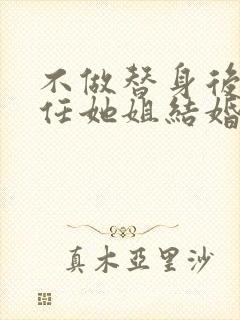 不做替身後
任她姐結婚
真木亞里沙